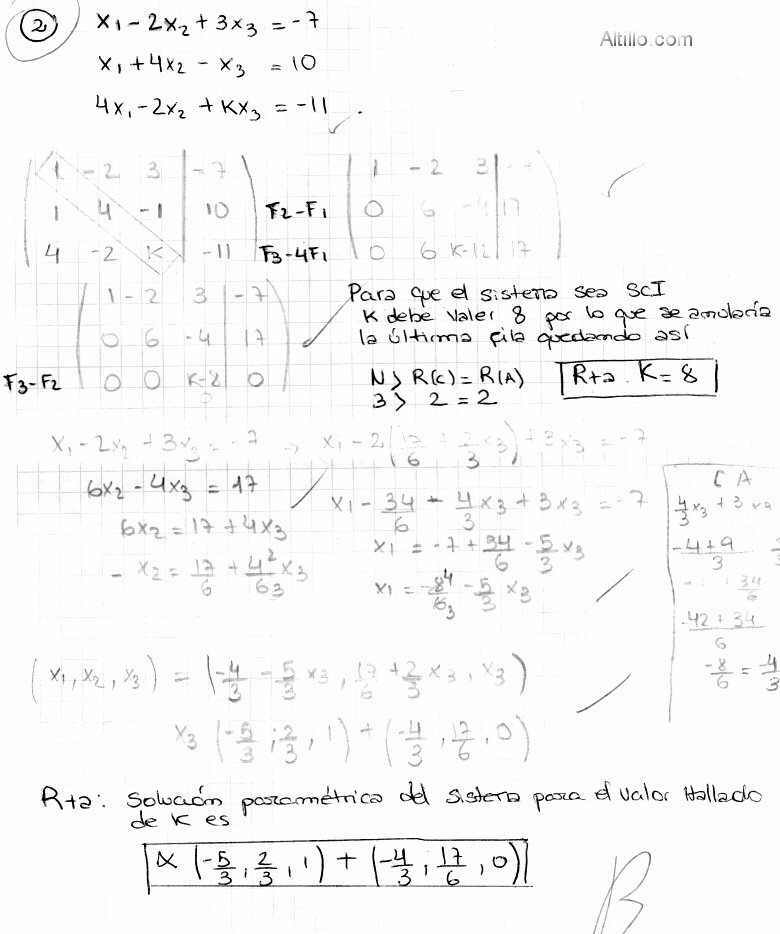 2
x₁ - 2x₂ + 3x₃ = -7
Altillo.com
x₁ + 4x₂ - x₃ = 10
4x₁ - 2x₂ + Kx₃ = -11 .
1 -2 3 | -7
1 4 -1 | 10
4 -2 K | -11
F2-F1
F3-4F1
1 -2 3 |
0 6 -4 | 17
0 6 K-12 | 17
F3-F2
1 -2 3 | -7
0 6 -4 | 17
0 0 K-8 | 0
Para que el sistema sea SCI
K debe valer 8 por lo que se anularía
la última fila quedando así
N > R(C) = R(A)
3 > 2 = 2
Rta. K = 8
x₁ - 2x₂ + 3x₃ = -7 → x₁ - 2(17/6 + 2/3 x₃) + 3x₃ = -7
6x₂ - 4x₃ = 17
x₁ - 34/6 - 4/3 x₃ + 3x₃ = -7
6x₂ = 17 + 4x₃
x₁ = -7 + 34/6 - 5/3 x₃
- x₂ = 17/6 + 4²/63 x₃
x₁ = -8⁴/6₃ - 5/3 x₃
CA
4/3 x₃ + 3 x₃
-4+9/3
34/6
-42+34/6
-8/6 = -4/3
(x₁, x₂, x₃) = (-4/3 - 5/3 x₃, 17/6 + 2/3 x₃, x₃)
x₃ (-5/3; 2/3, 1) + (-4/3, 17/6, 0)
Rta: Solución paramétrica del sistema para el valor Hallado
de K es
α (-5/3, 2/3, 1) + (-4/3, 17/6, 0)
B